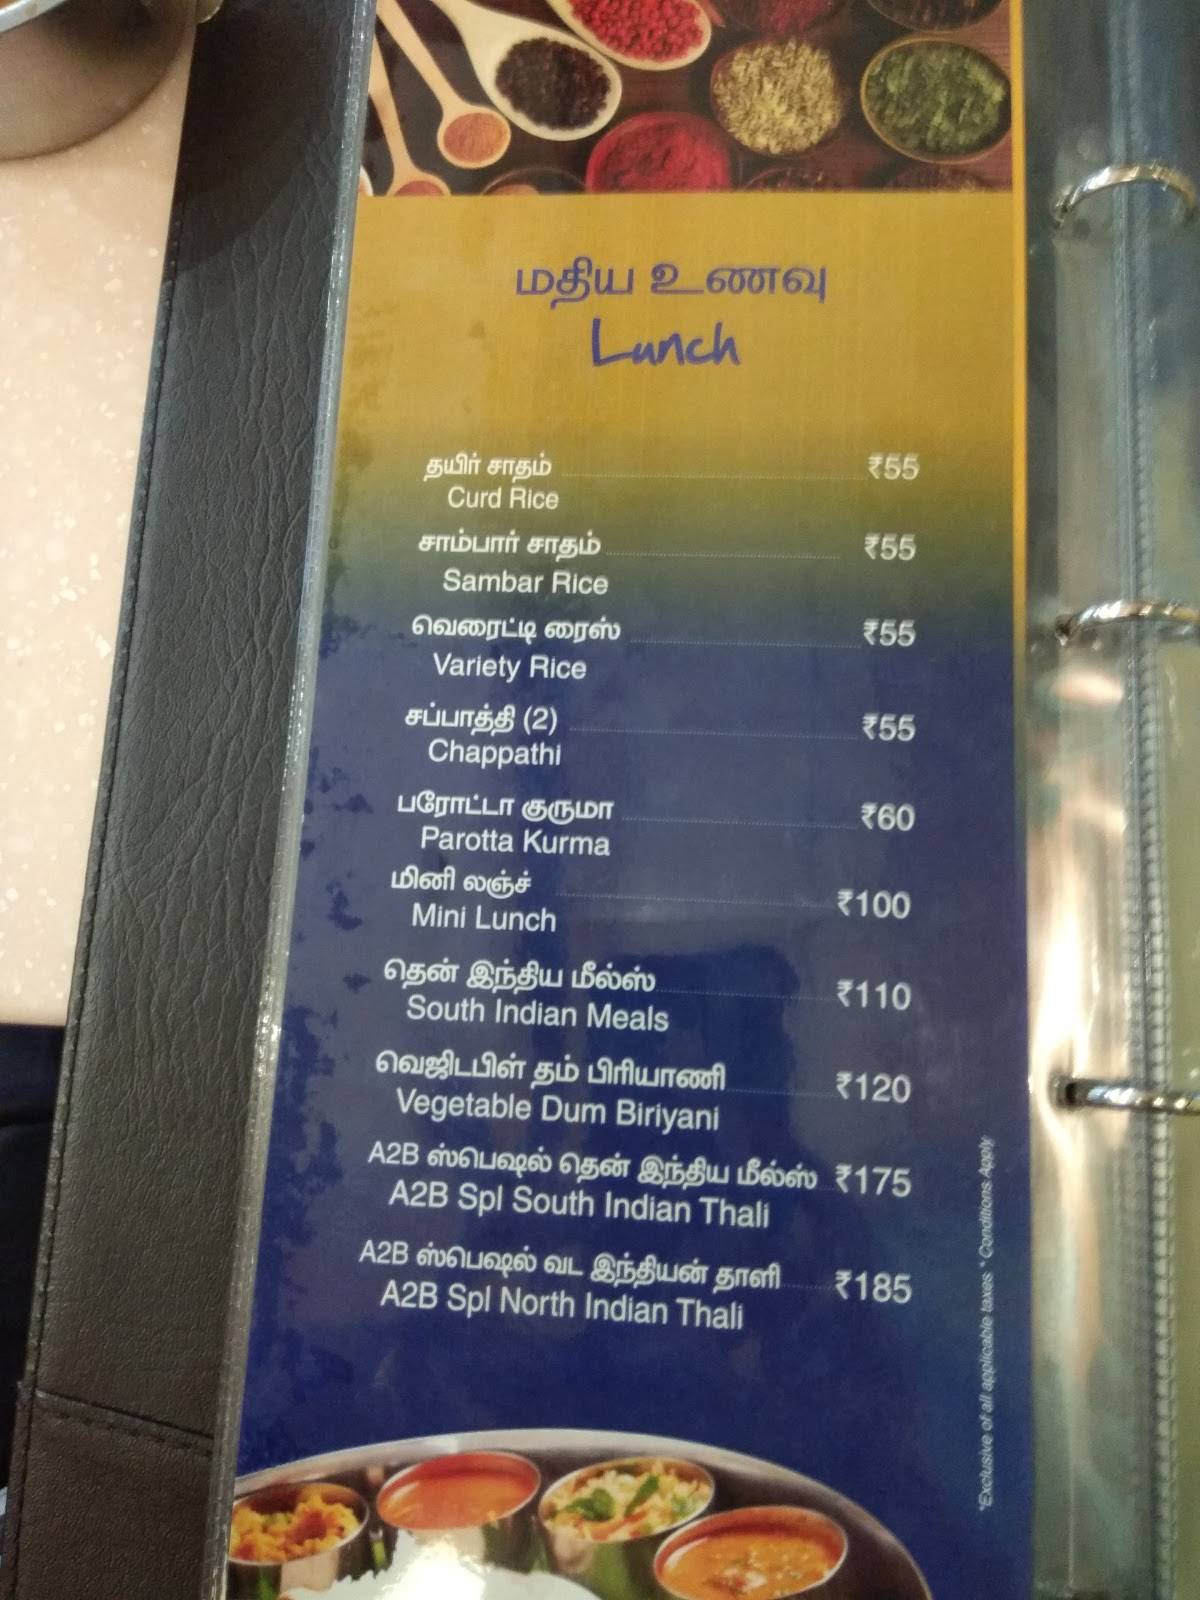 மதிய உணவு
Lunch
தயிர் சாதம் ₹55
Curd Rice
சாம்பார் சாதம் ₹55
Sambar Rice
வெரைட்டி ரைஸ் ₹55
Variety Rice
சப்பாத்தி (2) ₹55
Chappathi
பரோட்டா குருமா ₹60
Parotta Kurma
மினி லஞ்ச் ₹100
Mini Lunch
தென் இந்திய மீல்ஸ் ₹110
South Indian Meals
வெஜிடபிள் தம் பிரியாணி ₹120
Vegetable Dum Biriyani
A2B ஸ்பெஷல் தென் இந்திய மீல்ஸ் ₹175
A2B Spl South Indian Thali
A2B ஸ்பெஷல் வட இந்தியன் தாளி ₹185
A2B Spl North Indian Thali
*Exclusive of all applicable taxes * Conditions Apply